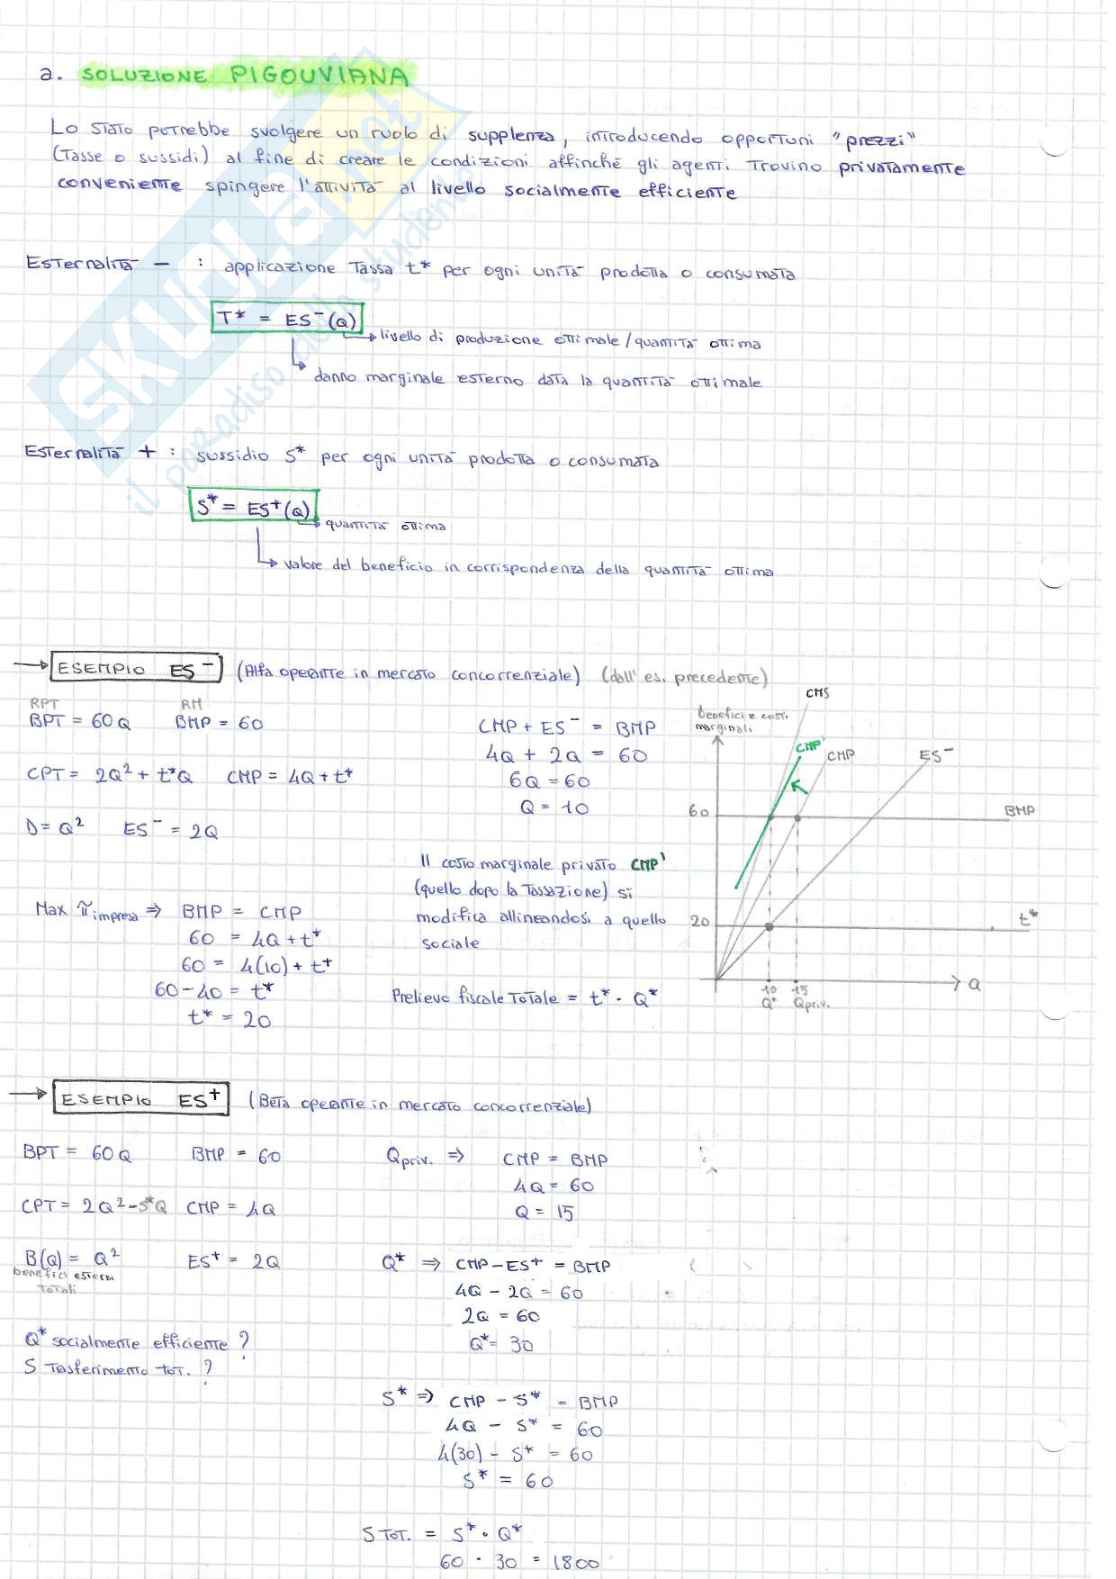 a. SOLUZIONE PIGOUVIANA
Lo Stato potrebbe svolgere un ruolo di supplenza, introducendo opportuni "prezzi"
(Tasse o sussidi) al fine di creare le condizioni affinché gli agenti trovino privatamente
conveniente spingere l'attività al livello socialmente efficiente
Esternalità - : applicazione Tassa t* per ogni unità prodotta o consumata
T* = ES⁻(Q)
livello di produzione ottimale/quantità ottima
danno marginale esterno data la quantità ottimale
Esternalità + : sussidio S* per ogni unità prodotta o consumata
S* = ES⁺(Q)
quantità ottima
valore del beneficio in corrispondenza della quantità ottima
→ ESEMPIO ES⁻ (Alfa operante in mercato concorrenziale) (dall'es. precedente)
RPT RM
BPT = 60Q BMP = 60
CPT = 2Q² + t*Q CMP = 4Q + t*
D = Q² ES⁻ = 2Q
Max π impresa ⇒ BMP = CMP
60 = 4Q + t*
60 = 4(10) + t*
60 - 40 = t*
t* = 20
CMP + ES⁻ = BMP
4Q + 2Q = 60
6Q = 60
Q = 10
Il costo marginale privato CMP'
(quello dopo la tassazione) si
modifica allineandosi a quello
sociale
Prelievo fiscale Totale = t* · Q*
benefici e costi
marginali
CMS
CMP'
CMP
ES⁻
60
BMP
20
t*
Q
10 15
Q* Qpriv.
→ ESEMPIO ES⁺ (Beta operante in mercato concorrenziale)
BPT = 60Q BMP = 60
CPT = 2Q² - S*Q CMP = 4Q
B(Q) = Q² ES⁺ = 2Q
benefici esterni
totali
Q* socialmente efficiente ?
S Tasferimento tot. ?
Qpriv. ⇒ CMP = BMP
4Q = 60
Q = 15
Q* ⇒ CMP - ES⁺ = BMP
4Q - 2Q = 60
2Q = 60
Q* = 30
S* ⇒ CMP - S* = BMP
4Q - S* = 60
4(30) - S* = 60
S* = 60
S TOT. = S* · Q*
60 · 30 = 1800
SKUOLA.net
il paradiso dello studente